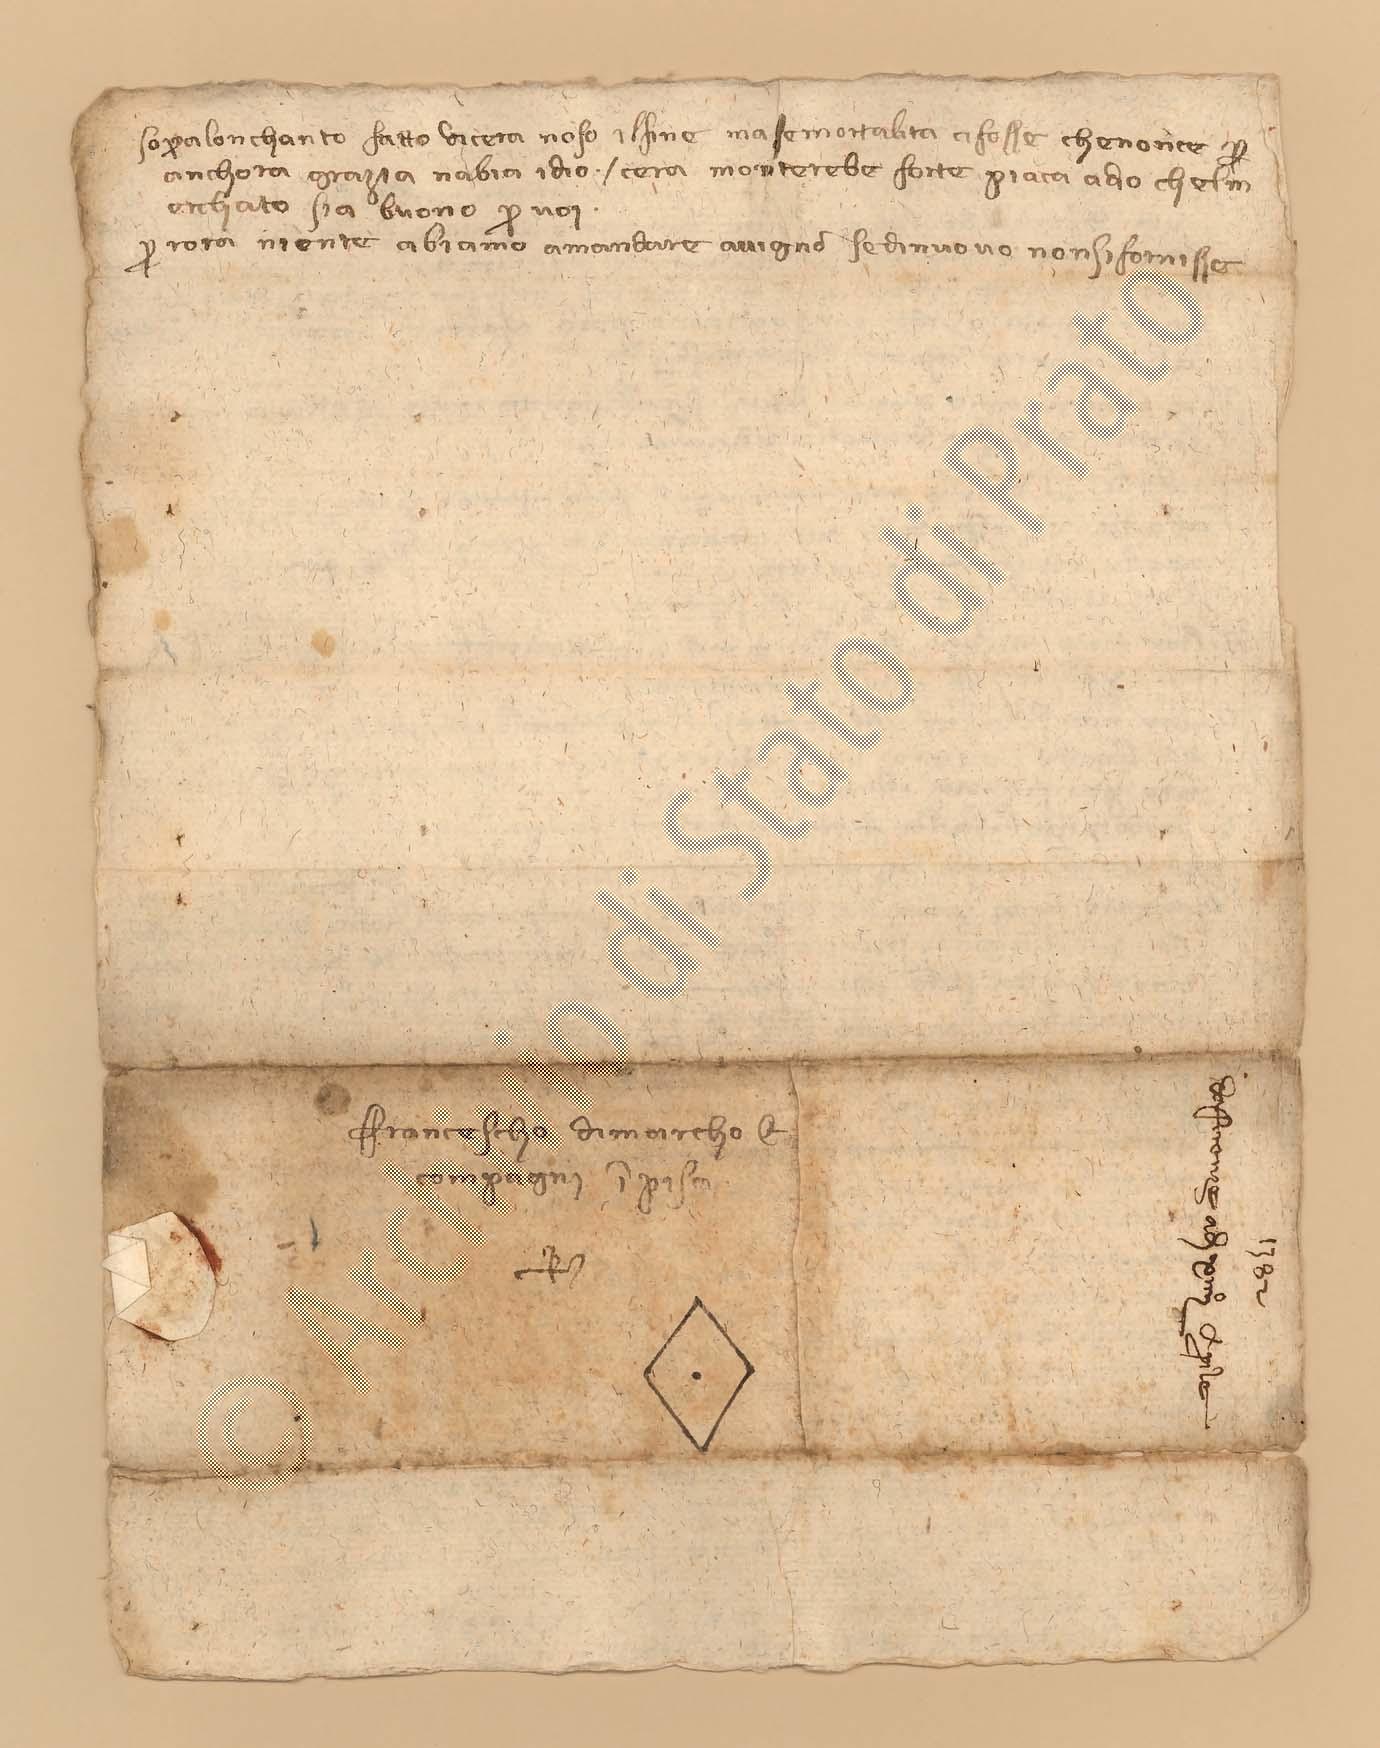 sopralonchanto fatto vi cera no so il fine ma se mortalita ci fosse che nonce p
anchora grazia nabia idio / cera monterebe forte piaca a dio chel m
erchato sia buono p voi
p rora niente abiamo amandare avignō se dinuovo non si fornisse
Francescho dimarcho &
compagni ī pisa
1382
© Archivio di Stato di Prato